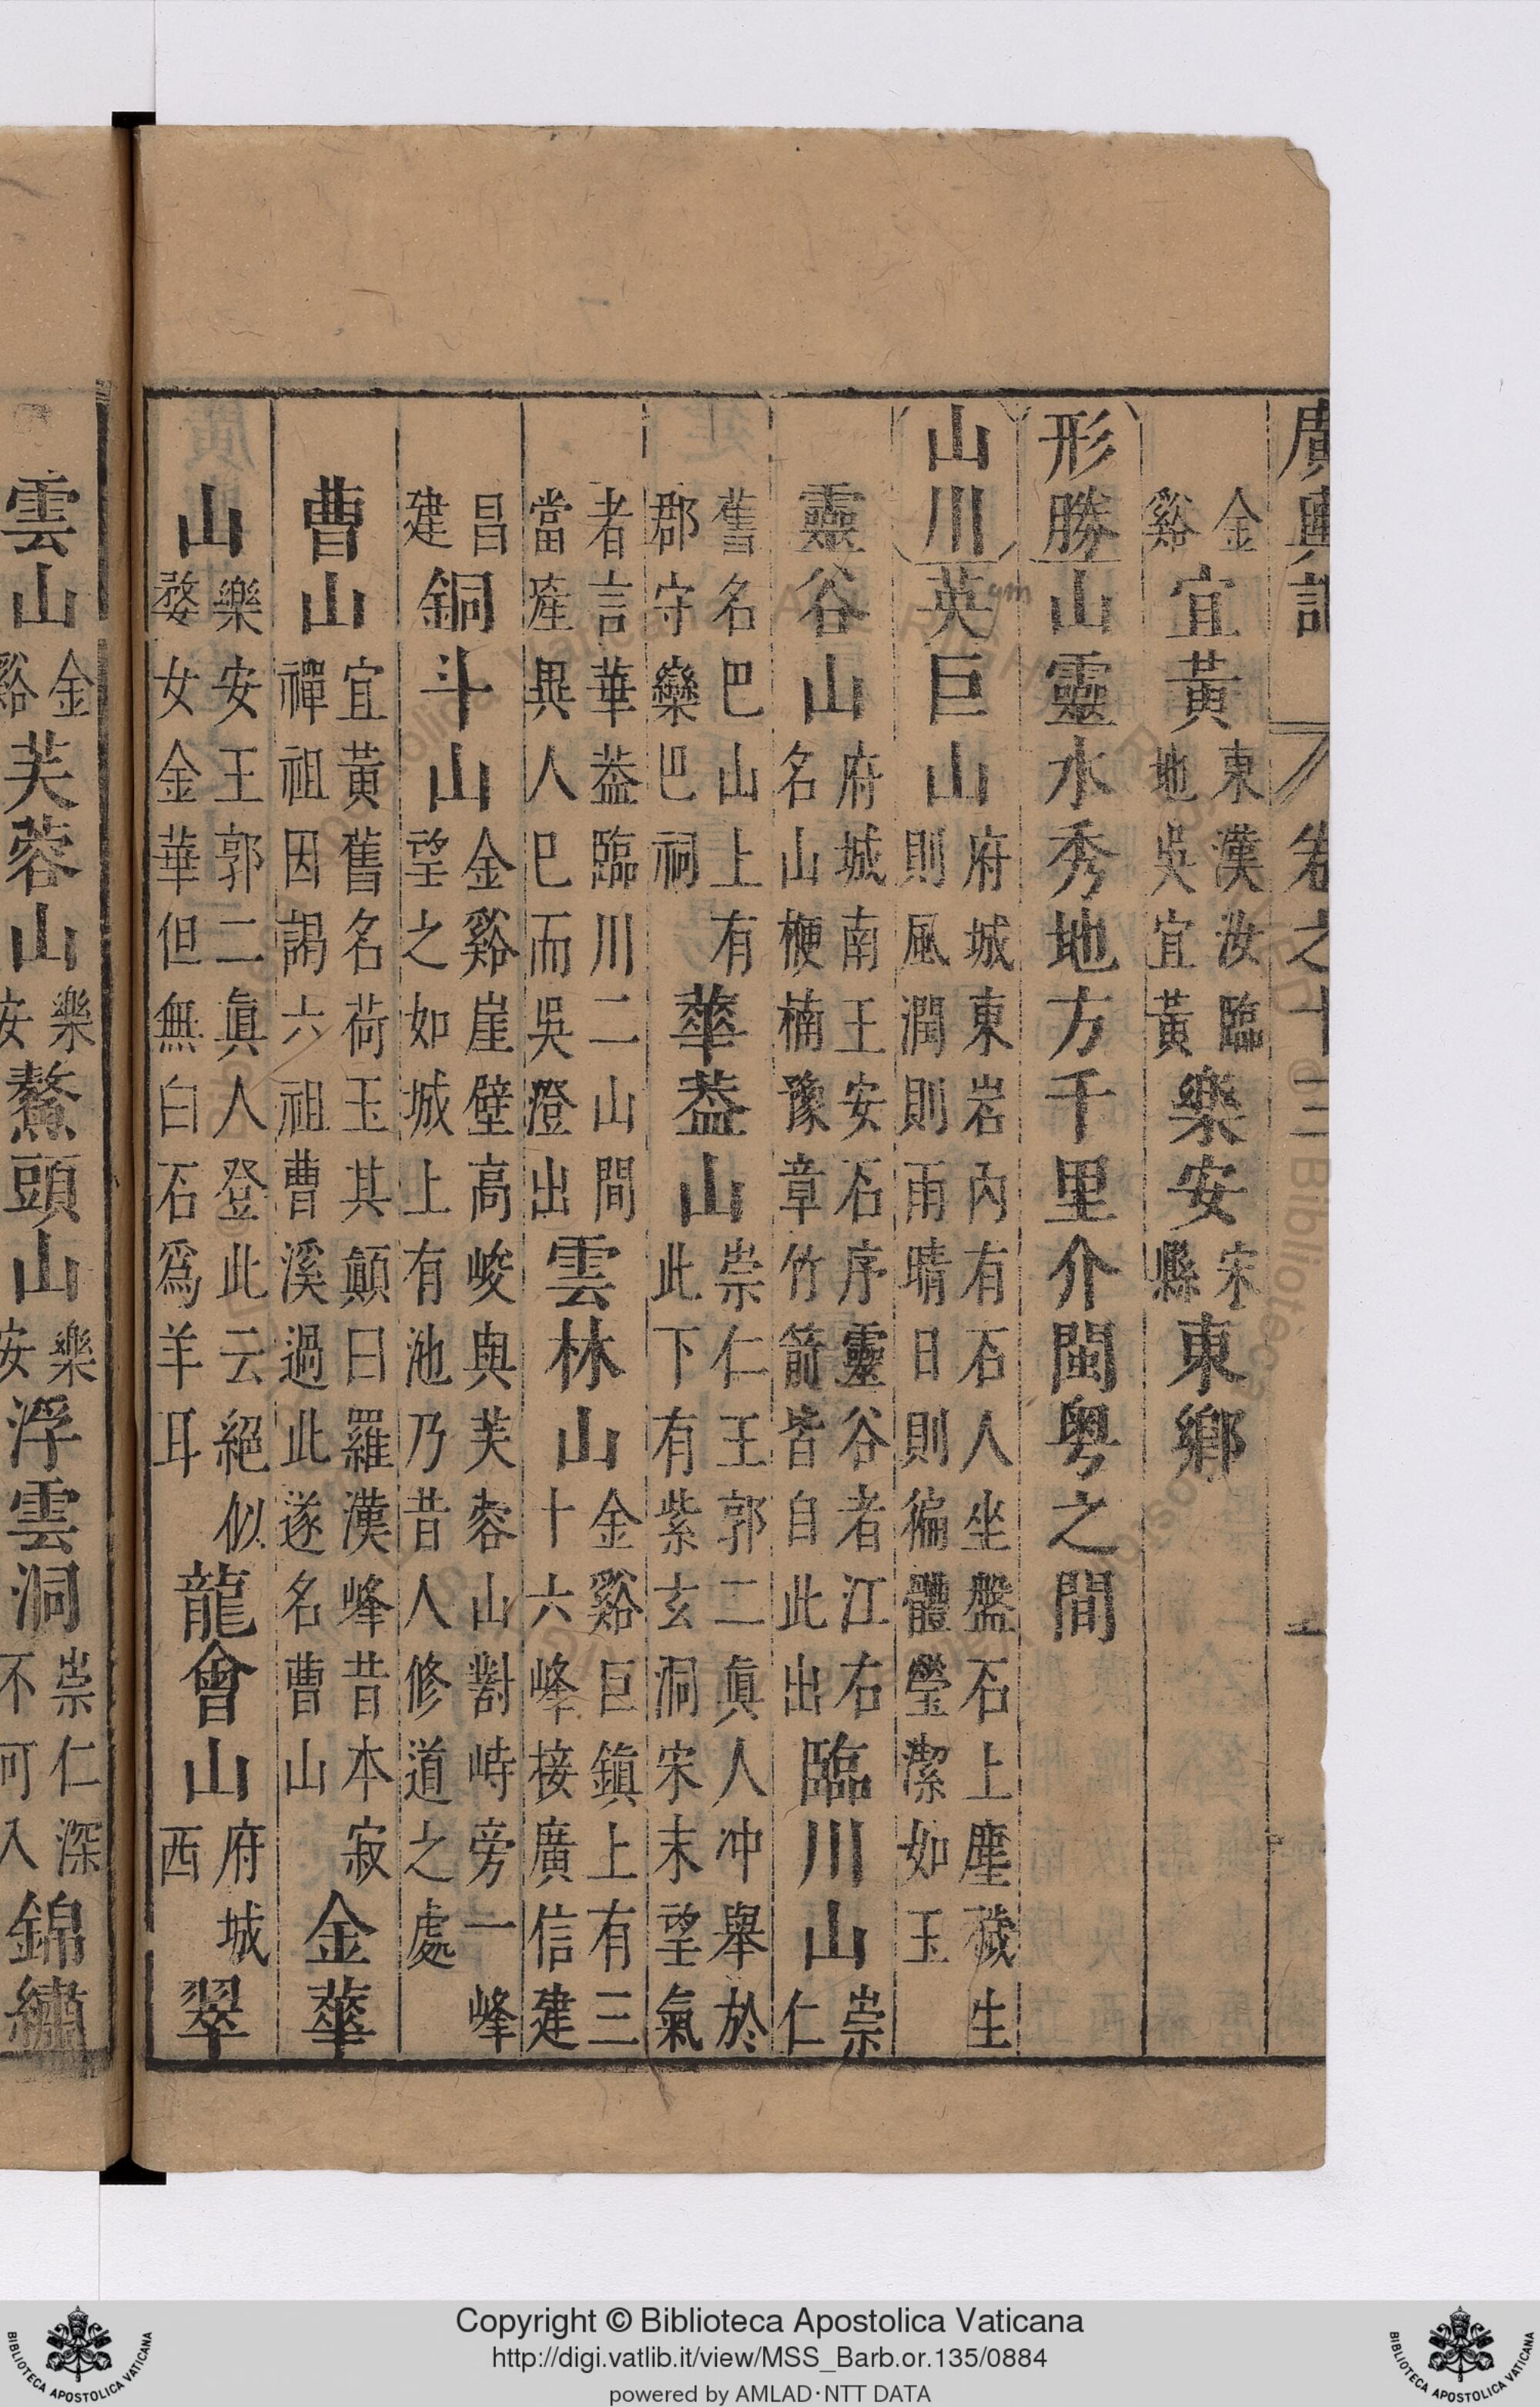 廣輿記 卷之十二
金谿宜黃東漢汝臨地吳宜黃樂安宋縣東鄉
形勝山靈水秀地方千里介閩粤之間
山川英巨山府城東岩內有石人坐盤石上塵穢生則風潤則雨晴日則徧體瑩潔如玉
靈谷山府城南王安石序靈谷者江右名山楩楠豫章竹箭皆自此出臨川山崇仁
舊名巴山上有郡守欒巴祠華葢山崇仁王郭二眞人冲舉於此下有紫玄洞宋末望氣
者言華葢臨川二山間當産異人巳而吳澄出雲林山金谿巨鎮上有三十六峰接廣信建
昌建銅斗山金谿崖壁高峻與芙蓉山對峙旁一峰望之如城上有池乃昔人修道之處
曹山宜黃舊名荷玉其顚曰羅漢峰昔本寂禪祖因謁六祖曹溪過此遂名曹山金華
山樂安王郭二眞人登此云絕似婺女金華但無白石爲羊耳龍會山府城西翠
雲山金谿芙蓉山樂安鰲頭山樂安浮雲洞崇仁深不可入錦繡
Copyright © Biblioteca Apostolica Vaticana
http://digi.vatlib.it/view/MSS_Barb.or.135/0884
powered by AMLAD·NTT DATA
BIBLIOTECA APOSTOLICA VATICANA
BIBLIOTECA APOSTOLICA VATICANA